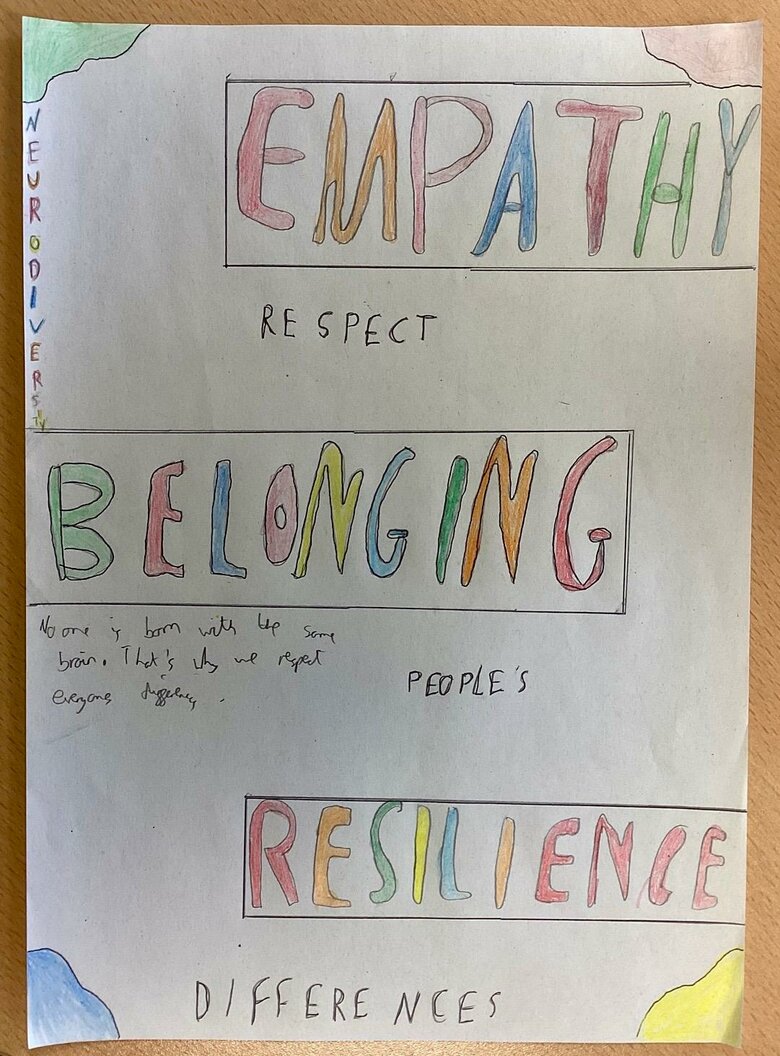 NEURODIVERSITY
EMPATHY
RESPECT
BELONGING
No one is born with the same
brain. That's why we respect
everyones differences.
PEOPLE'S
RESILIENCE
DIFFERENCES